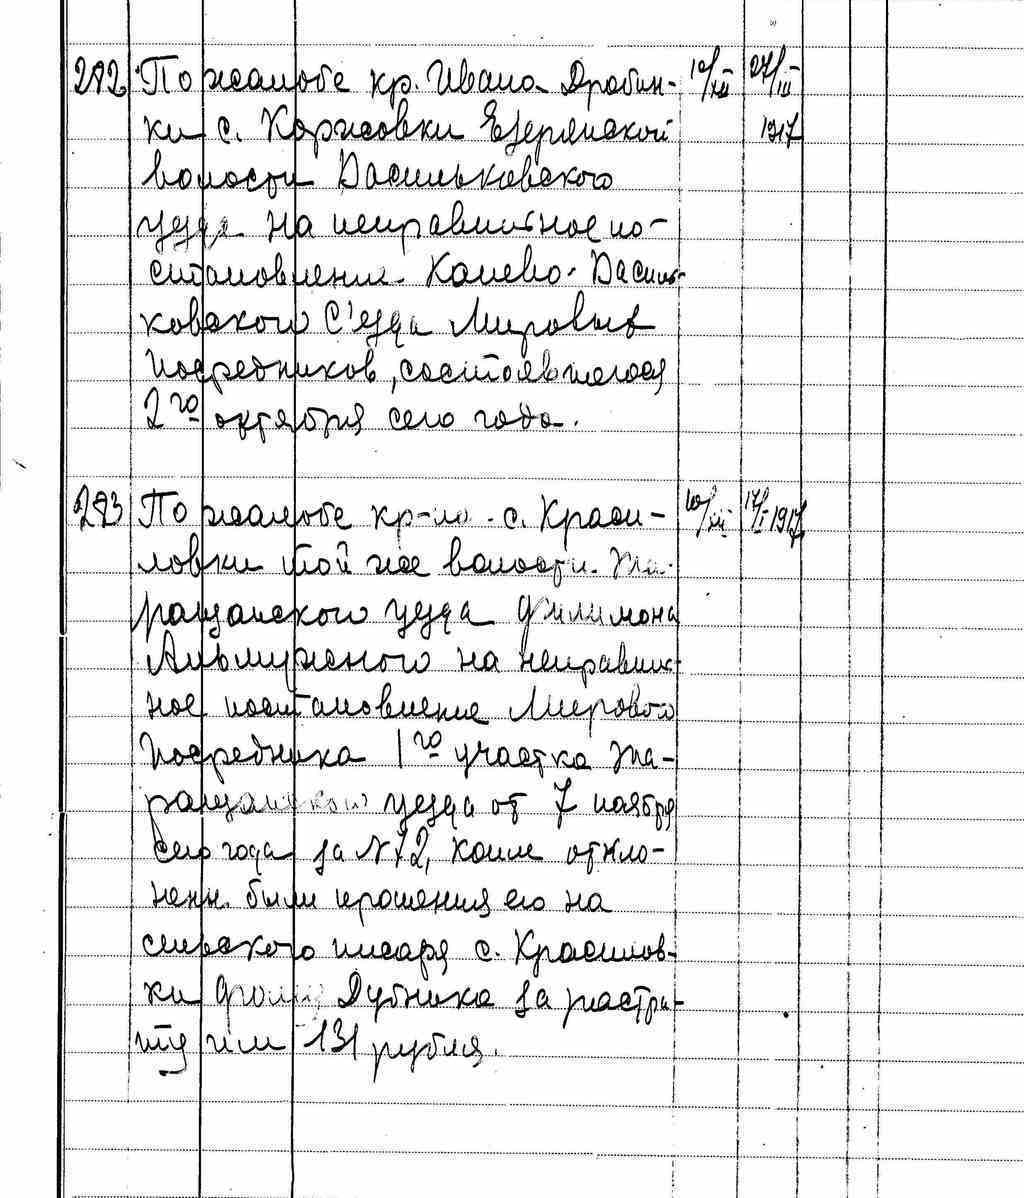 292 По жалобе кр. Ивана Дробин- 10/XII 27/III
ки с. Езерянской 1917
волости Васильковского
уезда на неправильное по-
становление Канево-Василь-
ковского С'езда Мировых
Посредников, состоявшегося
2го октября сего года.
293 По жалобе кр-на с. Краси- 10/XII 17/I 1917
ловки той же волости Та-
ращанского уезда Филимона
на неправиль-
ное постановление Мирового
Посредника 1го участка Та-
ращанского уезда от 7 ноября
сего года за N 72, коим откло-
нены были прошения его на
сельского писаря с. Красилов-
ки Дубника за растра-
ту им 131 рубля.